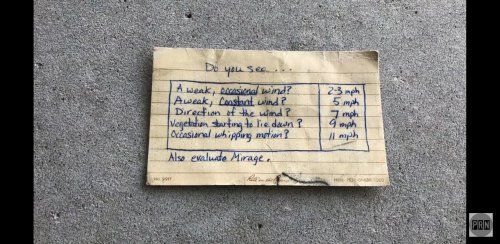 Do you see...
A weak, occasional wind? 2-3 mph
A weak, Constant wind? 5 mph
Direction of the wind? 7 mph
Vegetation starting to lie down? 9 mph
Occasional whipping motion? 11 mph
Also evaluate Mirage.
PRN